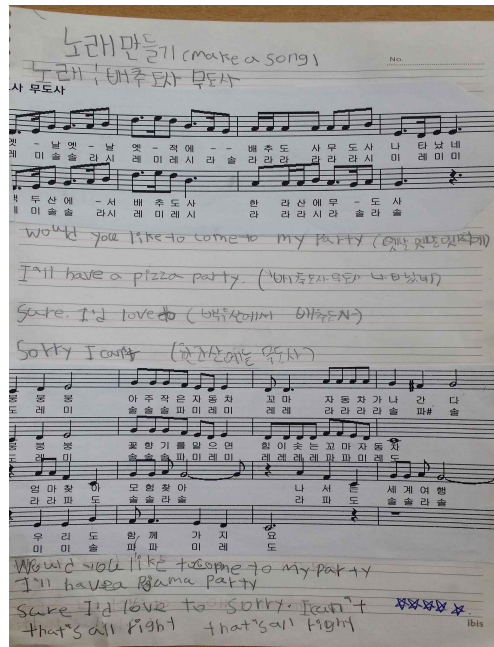 노래만들기(make a song)
No.
노래 : 배추도사 무도사
사 무도사
옛 - 날옛 - 날 옛 - 적에 - - 배추도 사무도사 나 타났네
레 미솔 솔 라시 레 미레시 라 솔 라라라 라라라시 미 레미미
백 두산에 - 서 배 추도사 한 라산에무 - 도 사
미솔솔 라시 레 미레시 라 라라시라 솔라 솔
would you like to come to my party (옛날 옛날 옛적에)
I'll have a pizza party. (배추도사 무도사 나타났네)
Sure. I'd love to (백두산에서 배추도사)
Sorry I can't (한라산에는 무도사)
붕붕붕 아주작은자동차 꼬마 자동차가나 간 다
도 레 미 솔솔솔파미레미 레레 라라라라솔 파# 솔
붕붕붕 꽃향기를맡으면 힘이솟는꼬마자동차
도 레 미 솔솔솔파미레미 레레레레파파미레 도
엄마찾 아 모험찾아 나 서 는 세계여행
라라파 도 솔솔라솔 라 파 도 솔솔라솔
우 리 도 함 께 가 지 요
미 미 솔 파 파 미 레 도
Would you like to come to my party
I'll have a Pajama party
sure I'd love to sorry. I can't ☆☆☆☆☆
that's all right that's all right
ibis